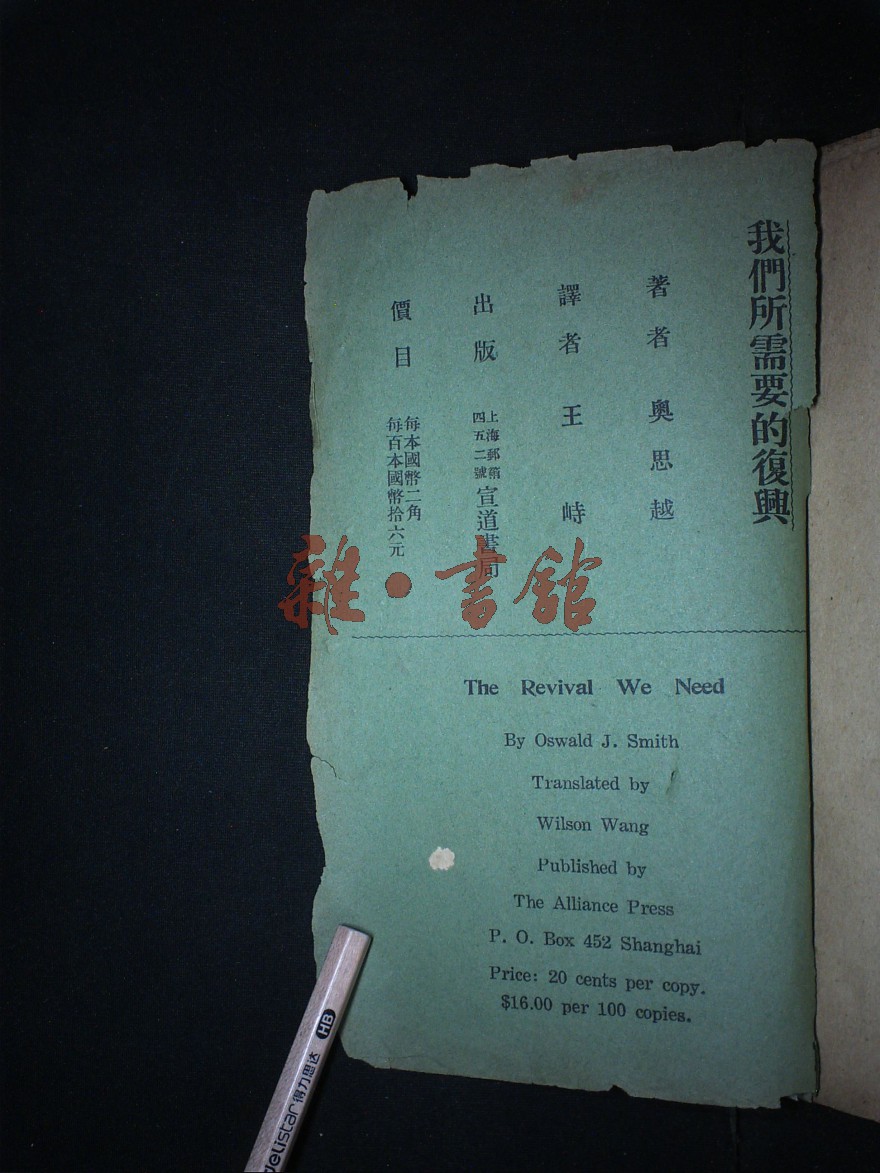 我們所需要的復興
著者 奧思越
譯者 王峙
出版 上海郵箱四五二號 宣道書局
價目 每本國幣二角
每百本國幣拾六元
The Revival We Need
By Oswald J. Smith
Translated by
Wilson Wang
Published by
The Alliance Press
P. O. Box 452 Shanghai
Price: 20 cents per copy.
$16.00 per 100 copies.
雜·書館
delistar 得力思达 HB